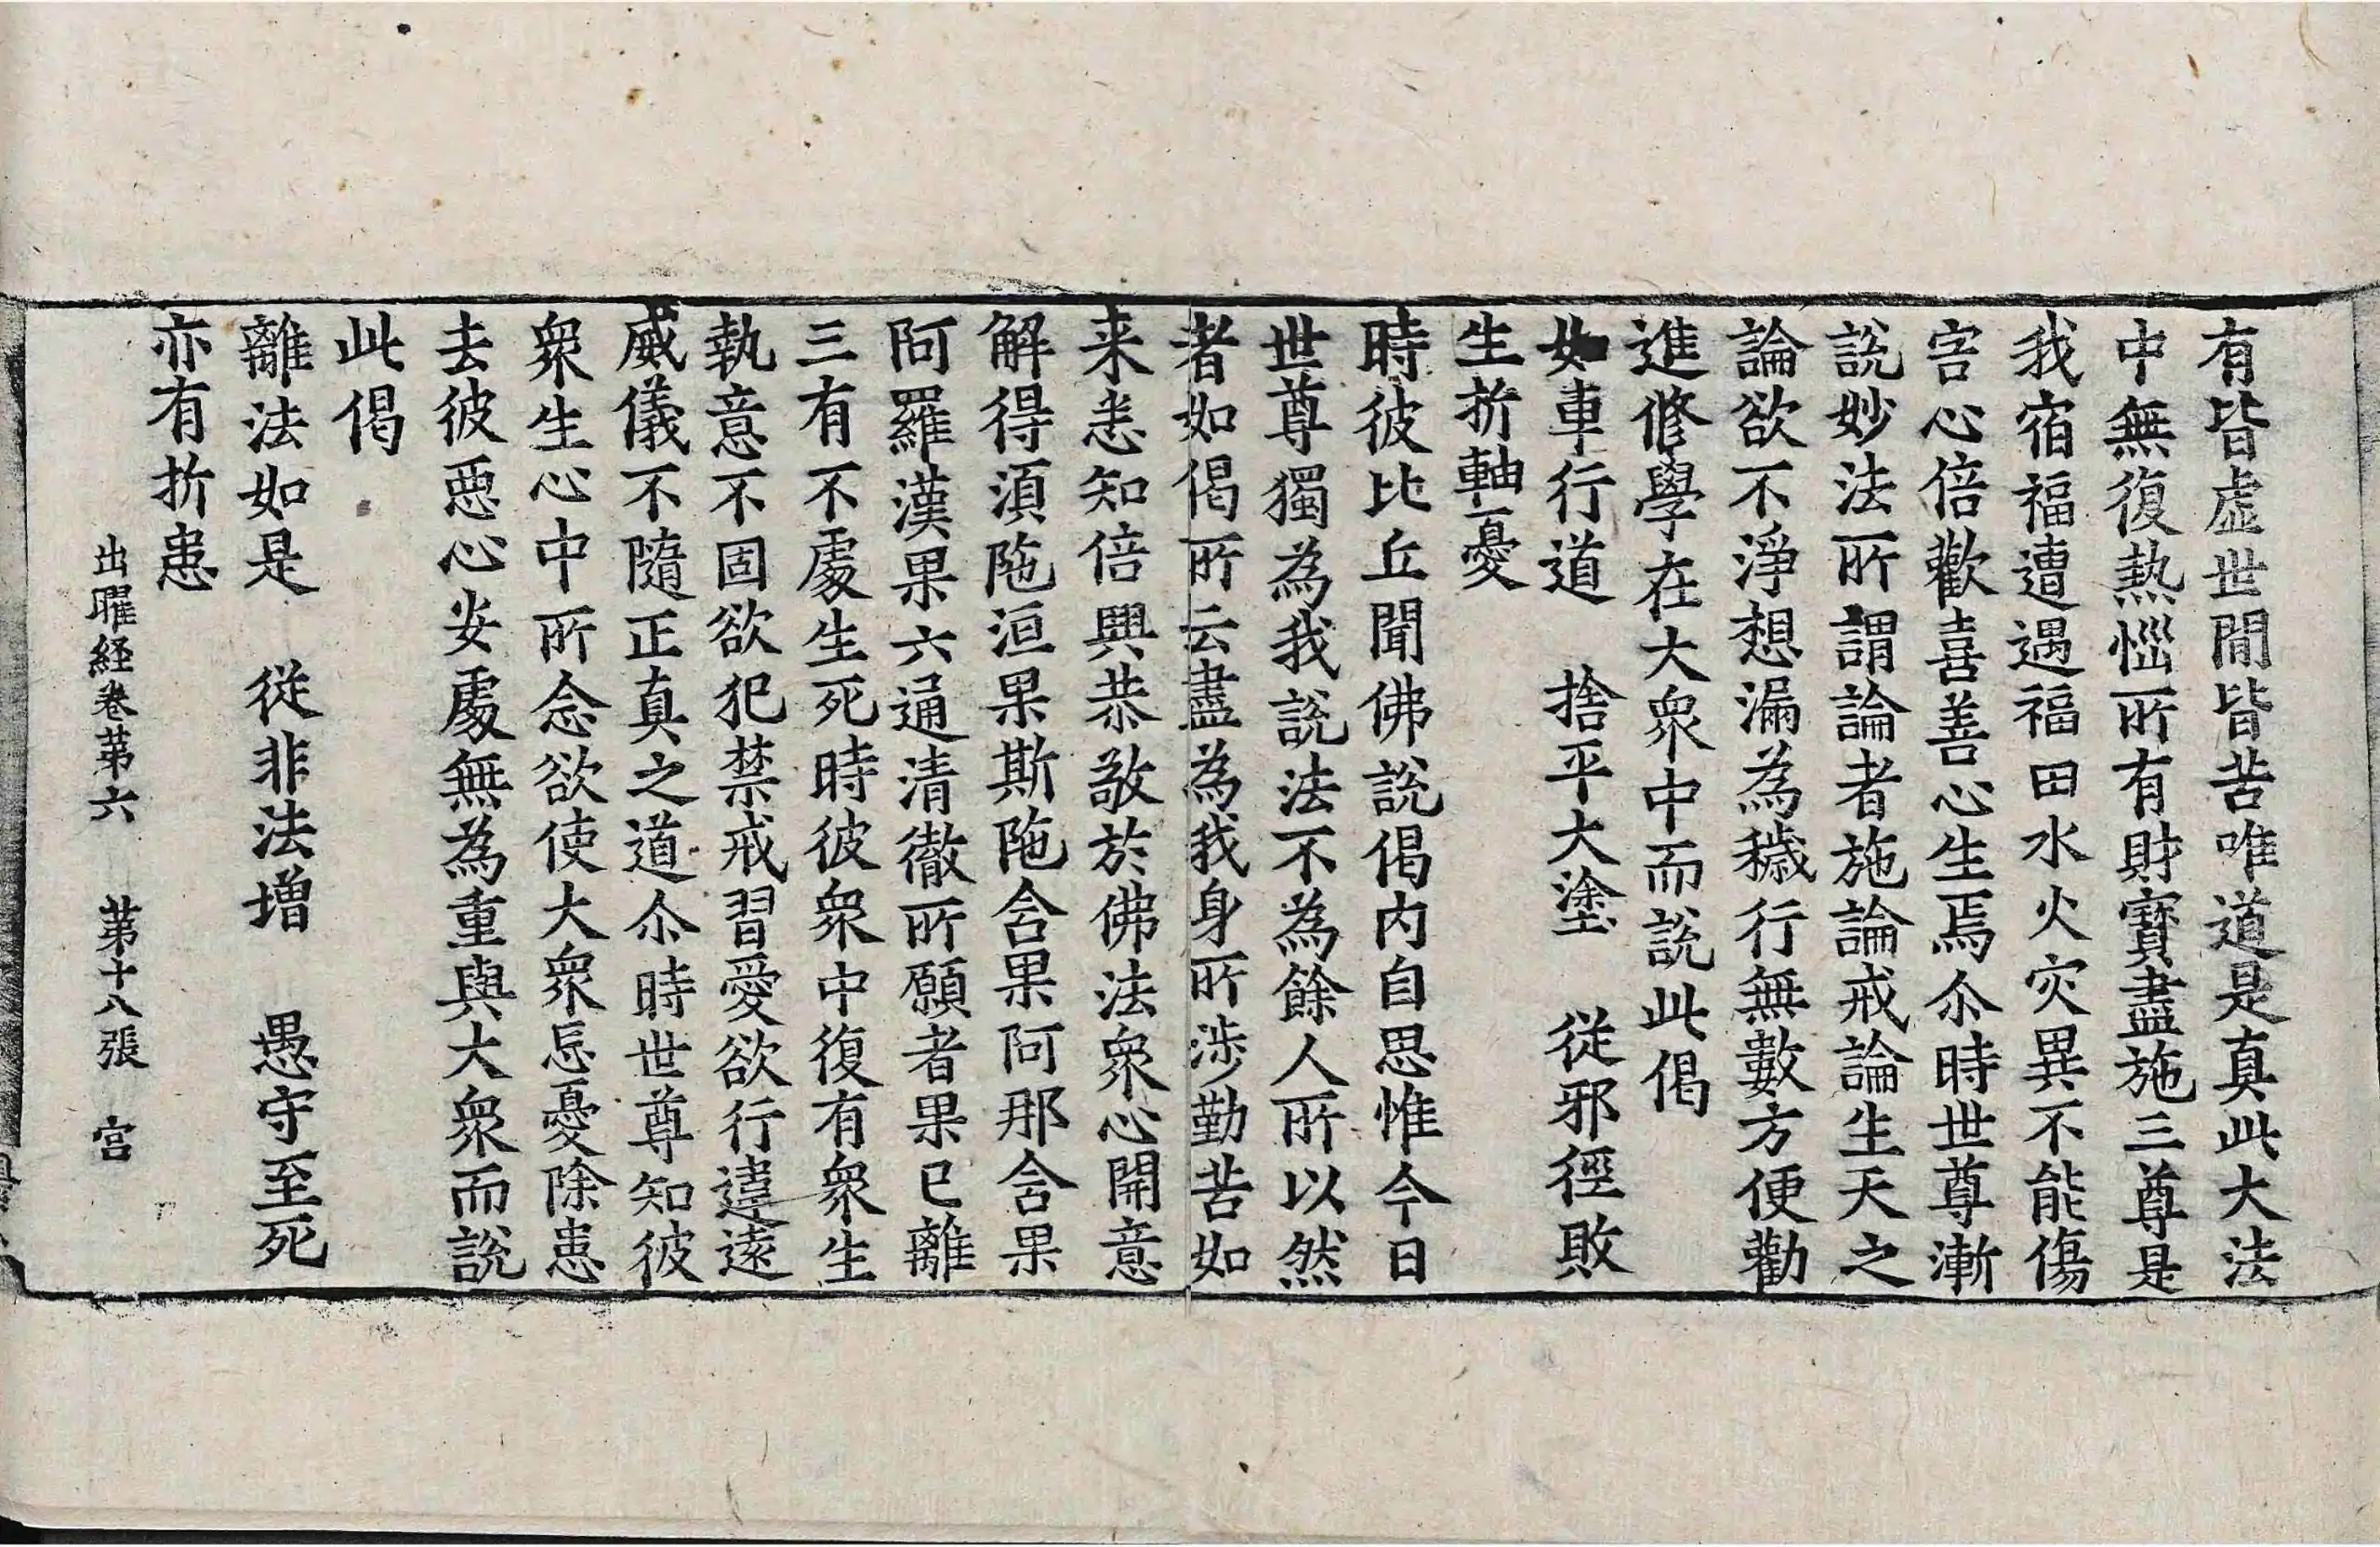 有皆虛世間皆苦唯道是真此大法
中無復熱惱所有財寶盡施三尊是
我宿福遭遇福田水火灾異不能傷
害心倍歡喜善心生焉尒時世尊漸
說妙法所謂論者施論戒論生天之
論欲不淨想漏為穢行無數方便勸
進修學在大衆中而說此偈
如車行道　捨平大塗　從邪徑敗
生折軸憂
時彼比丘聞佛說偈內自思惟今日
世尊獨為我說法不為餘人所以然
者如偈所云盡為我身所涉勤苦如
来悉知倍興恭敬於佛法衆心開意
解得湏陁洹果斯陁含果阿那含果
阿羅漢果六通清徹所願者果已離
三有不處生死時彼衆中復有衆生
執意不固欲犯禁戒習愛欲行違遠
威儀不隨正真之道尒時世尊知彼
衆生心中所念欲使大衆忘憂除患
去彼惡心安處無為重與大衆而說
此偈
離法如是　從非法增　愚守至死
亦有折患
出曜経卷苐六　苐十八張　宫